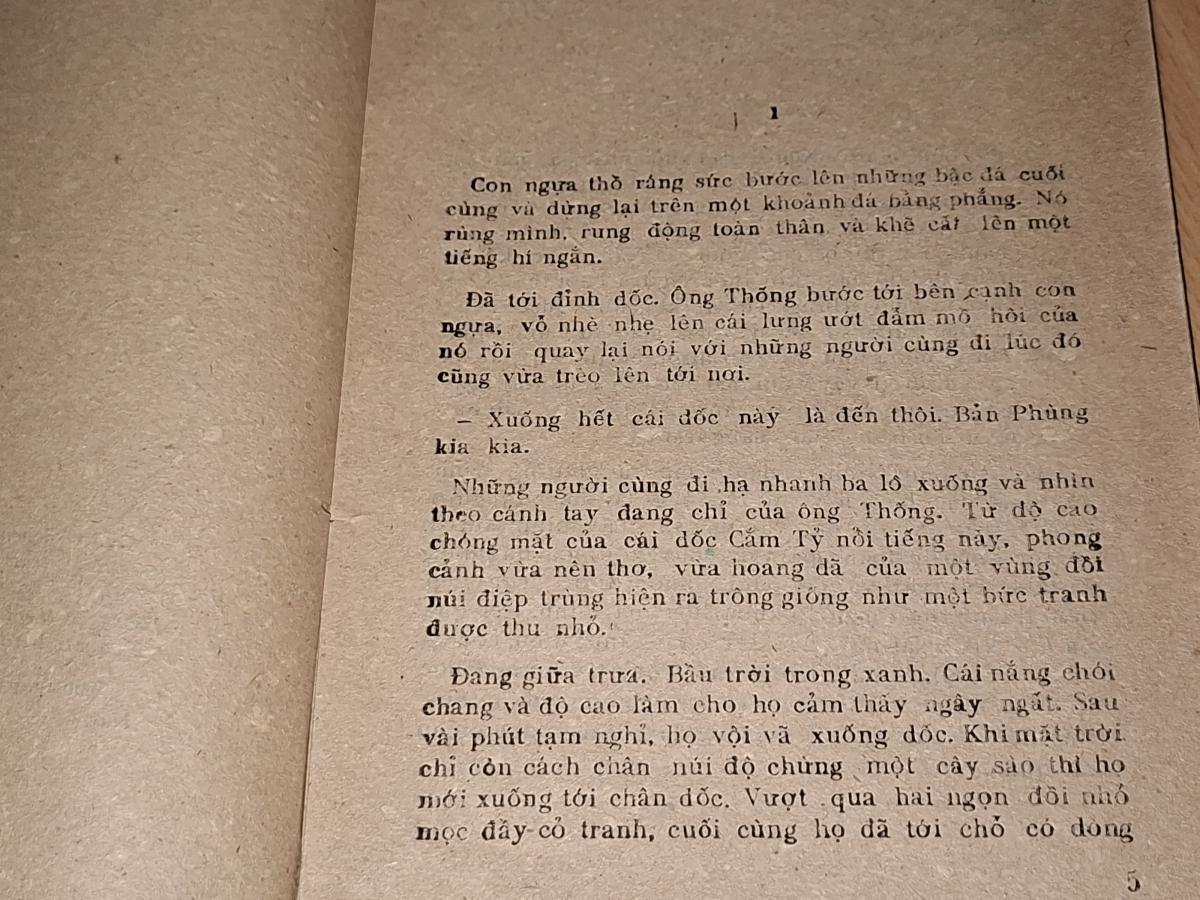 1
Con ngựa thồ ráng sức bước lên những bậc đá cuối
cùng và dừng lại trên một khoảnh đá bằng phẳng. Nó
rùng mình, rung động toàn thân và khẽ cất lên một
tiếng hí ngắn.
Đã tới đỉnh dốc. Ông Thống bước tới bên cạnh con
ngựa, vỗ nhè nhẹ lên cái lưng ướt đẫm mồ hôi của
nó rồi quay lại nói với những người cùng đi lúc đó
cũng vừa trèo lên tới nơi.
— Xuống hết cái dốc này là đến thôi. Bản Phùng
kia kìa.
Những người cùng đi hạ nhanh ba lô xuống và nhìn
theo cánh tay đang chỉ của ông Thống. Từ độ cao
chóng mặt của cái dốc Cắm Tỷ nổi tiếng này, phong
cảnh vừa nên thơ, vừa hoang dã của một vùng đồi
núi điệp trùng hiện ra trông giống như một bức tranh
được thu nhỏ.
Đang giữa trưa. Bầu trời trong xanh. Cái nắng chói
chang và độ cao làm cho họ cảm thấy ngây ngất. Sau
vài phút tạm nghỉ, họ vội vã xuống dốc. Khi mặt trời
chỉ còn cách chân núi độ chừng một cây sào thì họ
mới xuống tới chân dốc. Vượt qua hai ngọn đồi nhỏ
mọc đầy cỏ tranh, cuối cùng họ đã tới chỗ có dòng
5